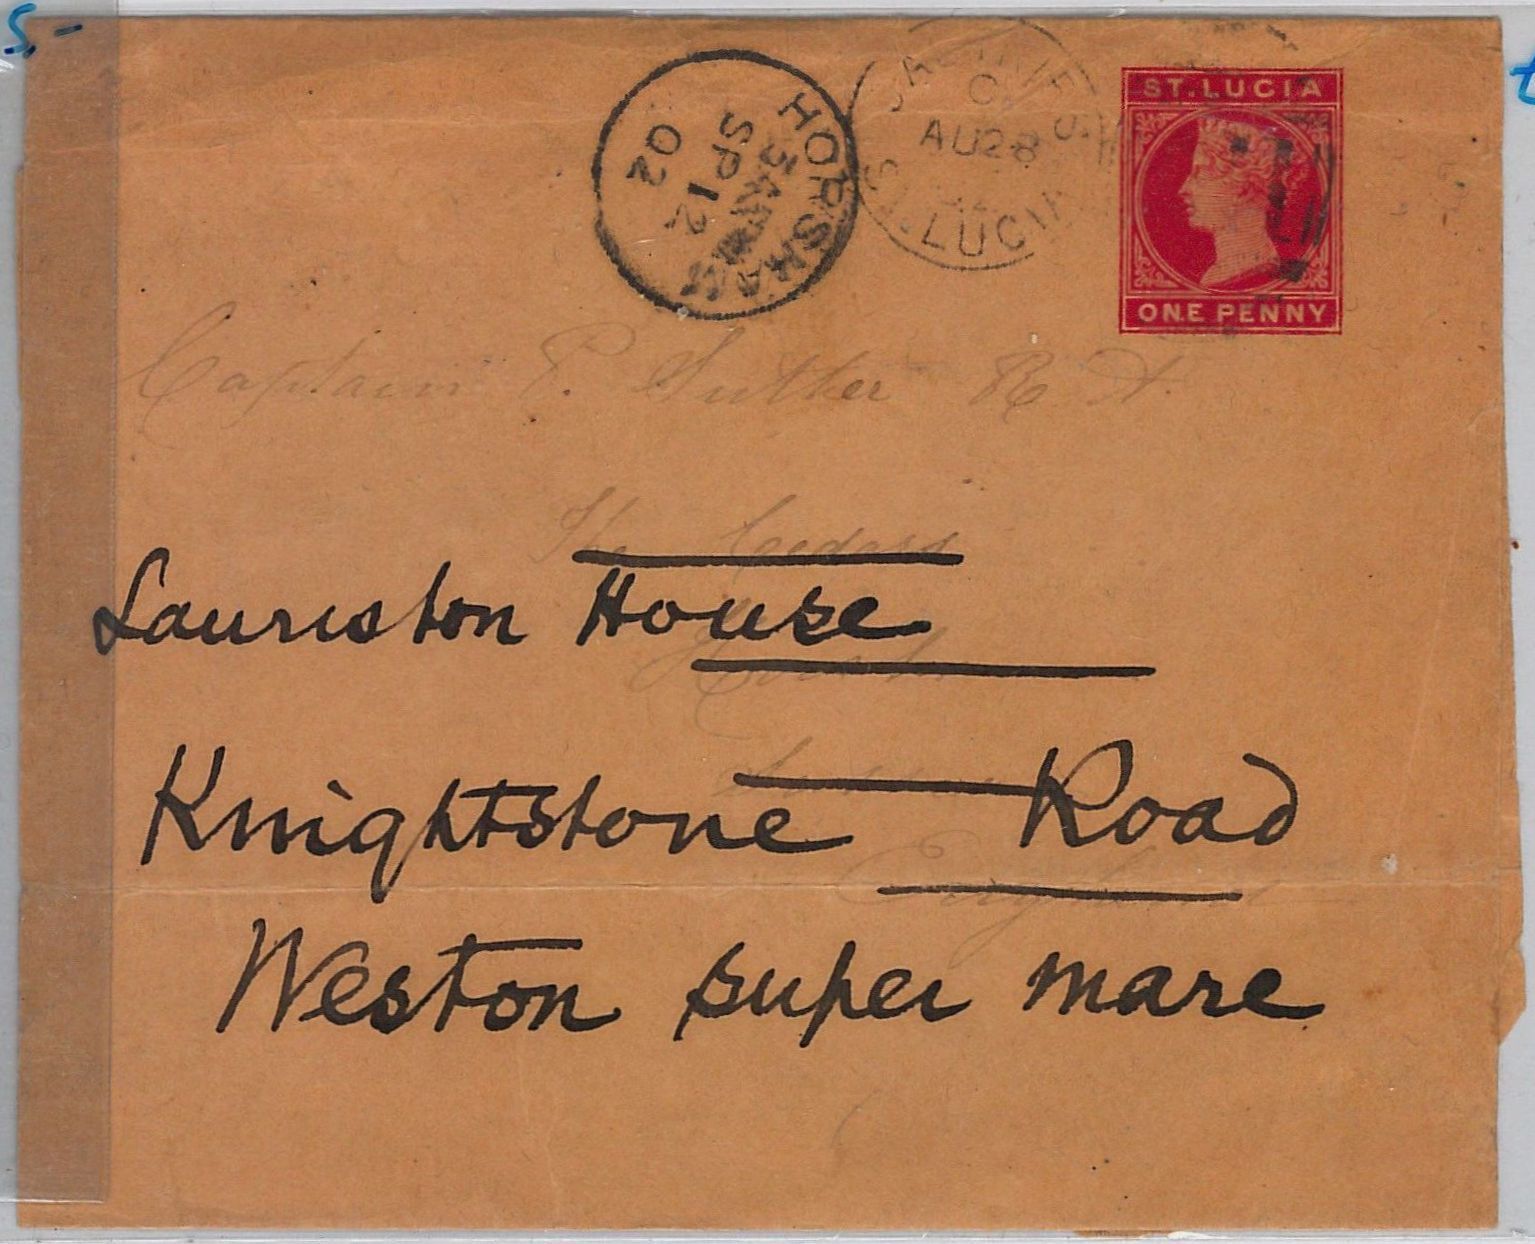 5.-
ST. LUCIA
ONE PENNY
ST. LUCIA
AU 28
C
HORSHAM
SP 12
02
Captain E. Sutther R A.
The Cedars
Lauriston House
Knightstone Road
England
Weston super mare